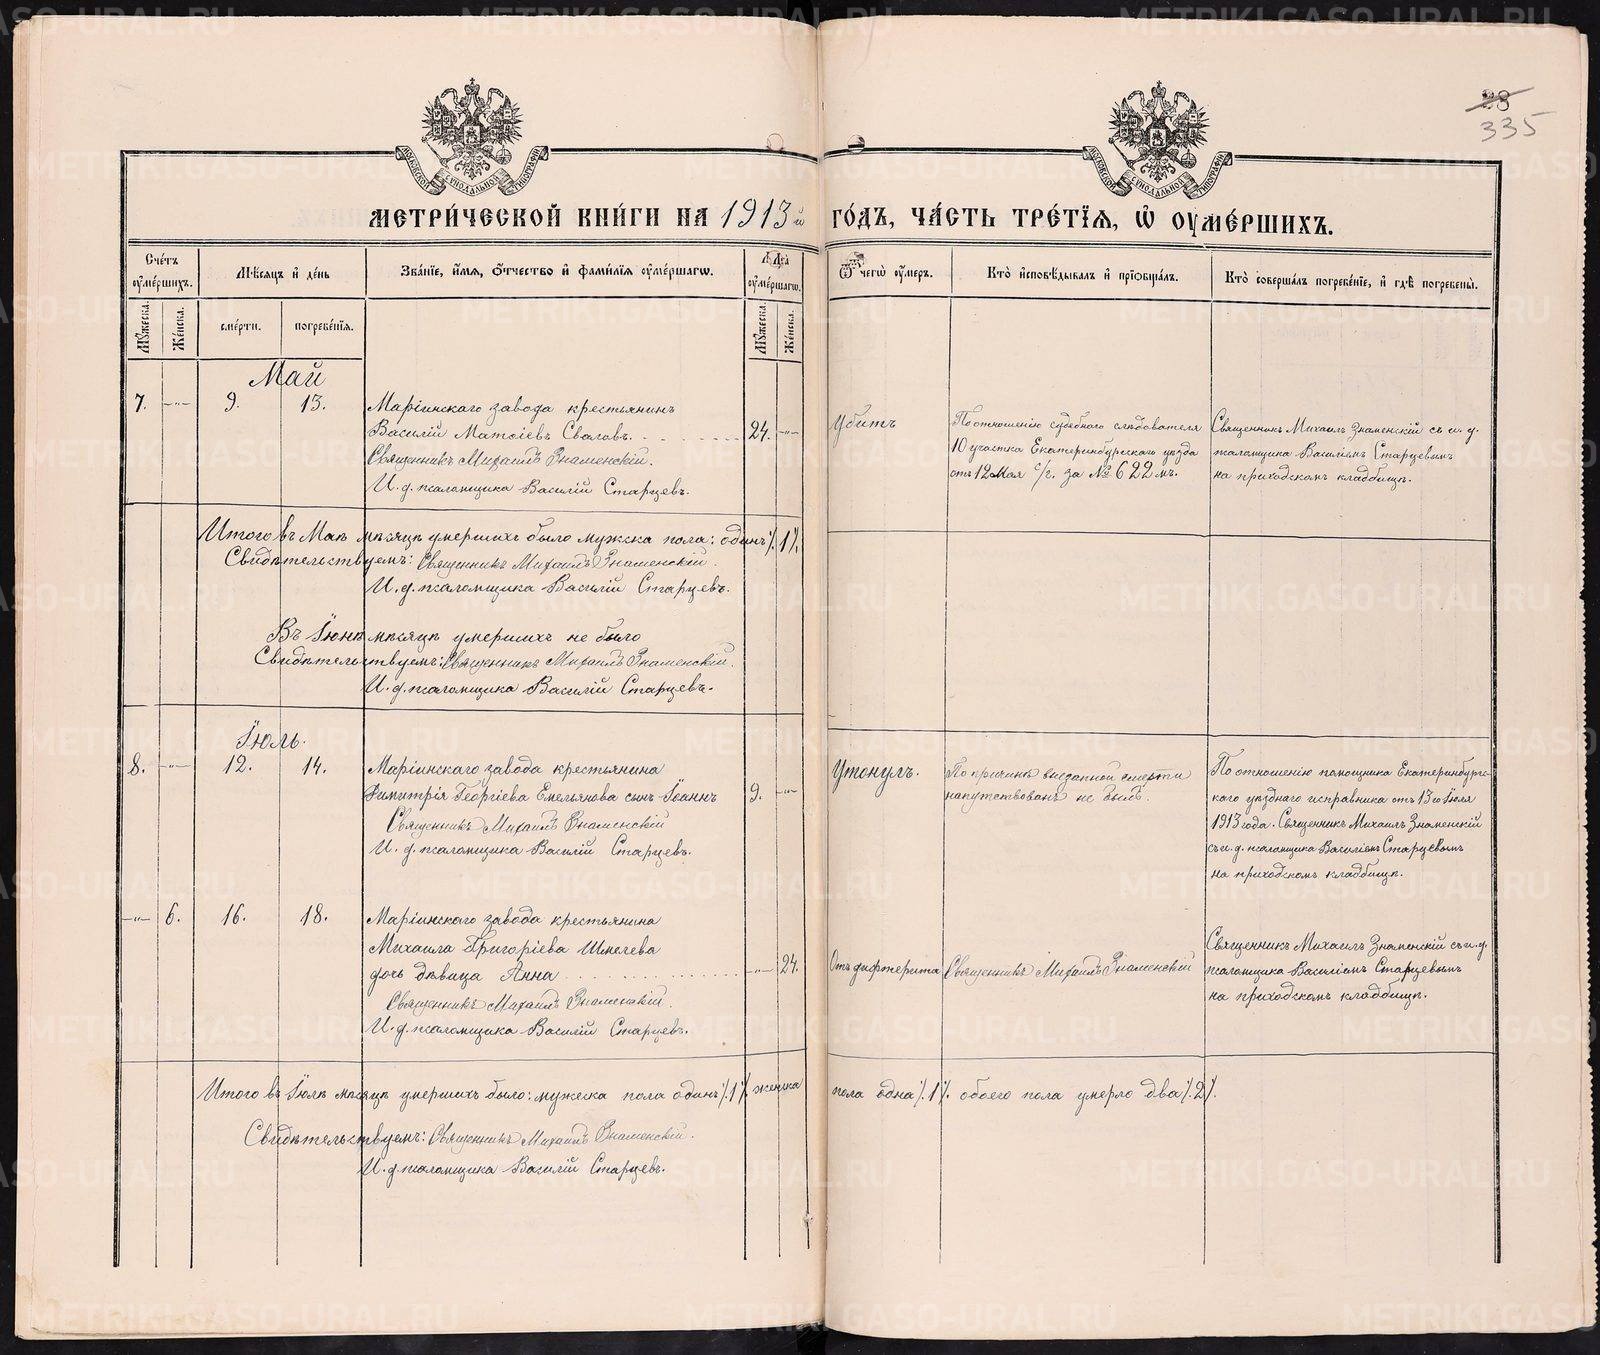 28
335
МОСКОВСКОЙ СѴНОДАЛЬНОЙ ТИПОГРАФІИ
МОСКОВСКОЙ СѴНОДАЛЬНОЙ ТИПОГРАФІИ
МЕТРИ́ЧЕСКОЙ КНИ́ГИ НА 1913й ГО́ДЪ, ЧА́СТЬ ТРЕ́ТЇѦ, Ѡ҆ ОУМЕ́РШИХЪ.
Сче́тъ оуме́ршихъ.
Мѣсяцъ и҆ де́нь
Зва́нїе, и҆́мя, ѻ҆́тчество и҆ фами́лїя оуме́ршагѡ.
Лѣта̀ оуме́ршагѡ.
Ѿ чегѡ̀ оу́меръ.
Кто̀ и҆сповѣ́дывалъ и҆ прїѻбща́лъ.
Кто̀ соверша́лъ погребе́нїе, и҆ гдѣ̀ погребены̀.
Мꙋ́жеска.
Же́нска.
сме́рти.
погребе́нїя.
Мꙋ́жеска.
Же́нска.
Май
7. -"- 9. 13. Маріинскаго завода крестьянинъ
Василій Матѳіевъ Сваловъ. 24. -"-
Священникъ Михаилъ Знаменскій.
И. д. псаломщика Василій Старцевъ.
Убитъ
По отношенію судебного слѣдователя
10 участка Екатеринбургскаго уѣзда
отъ 12 Мая с/г. за № 622 мъ.
Священникъ Михаилъ Знаменскій съ и. д.
псаломщика Василіемъ Старцевымъ
на приходскомъ кладбищѣ.
Итого въ Маѣ мѣсяцѣ умершихъ было мужска пола: одинъ /.1/.
Свидѣтельствуемъ: Священникъ Михаилъ Знаменскій.
И. д. псаломщика Василій Старцевъ.
Въ Іюнѣ мѣсяцѣ умершихъ не было
Свидѣтельствуемъ: Священникъ Михаилъ Знаменскій.
И. д. псаломщика Василій Старцевъ.
Іюль.
8. -"- 12. 14. Маріинскаго завода крестьянина
Димитрія Георгіева Емельянова сынъ Іоаннъ 9. -"-
Священникъ Михаилъ Знаменскій
И. д. псаломщика Василій Старцевъ.
Утонулъ.
По причинѣ внезапной смерти
напутствованъ не былъ.
По отношенію помощника Екатеринбургс-
каго уѣзднаго исправника отъ 13 го Іюля
1913 года. Священникъ Михаилъ Знаменскій
съ и. д. псаломщика Василіемъ Старцевымъ
на приходскомъ кладбищѣ.
-"- 6. 16. 18. Маріинскаго завода крестьянина
Михаила Григоріева Шмелева
дочь дѣвица Анна -"- 24.
Священникъ Михаилъ Знаменскій.
И. д. псаломщика Василій Старцевъ.
Отъ дифтерита
Священникъ Михаилъ Знаменскій
Священникъ Михаилъ Знаменскій съ и. д.
псаломщика Василіемъ Старцевымъ
на приходскомъ кладбищѣ.
Итого въ Іюлѣ мѣсяцѣ умершихъ было: мужеска пола одинъ /.1/. женска пола одна /.1/. обоего пола умерло два /.2/.
Свидѣтельствуемъ: Священникъ Михаилъ Знаменскій.
И. д. псаломщика Василій Старцевъ.
METRIKI.GASO-URAL.RU